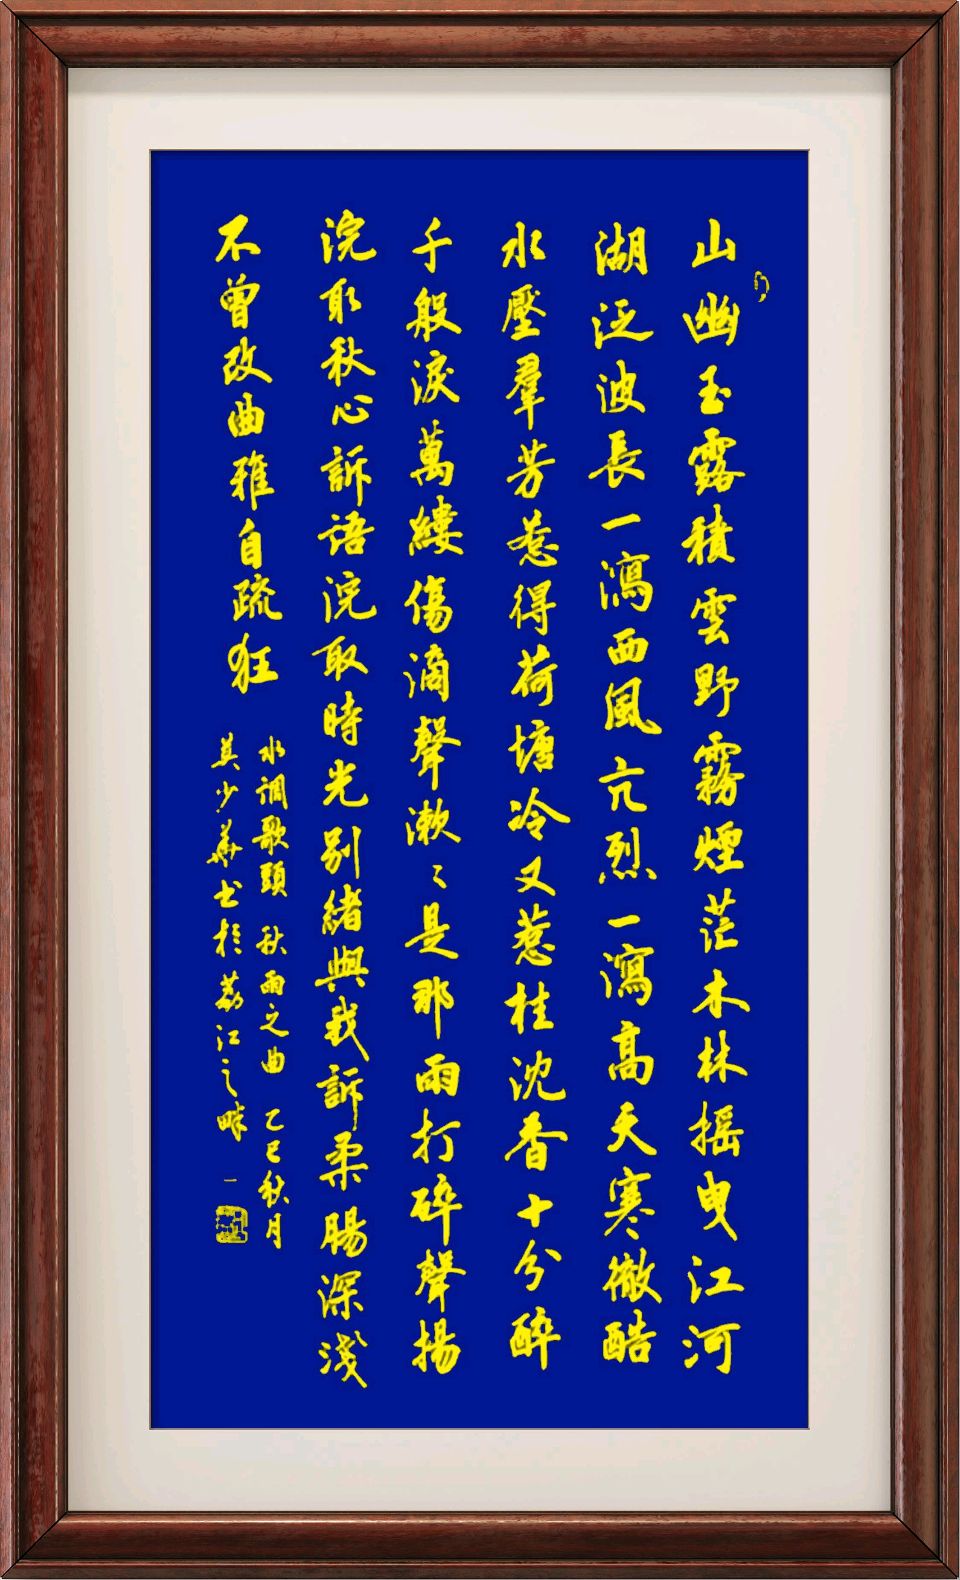 山幽玉露積雲野霧煙茫木林搖曳江河
湖泛波長一瀉西風亢烈一瀉高天寒徹酷
水壓羣芳惹得荷塘冷又惹桂沈香十分醉
千般淚萬縷傷滴聲漱〻是那雨打碎聲揚
浣取秋心訴語浣取時光別緒與我訴柔腸深淺
不曾改曲雅自疏狂
水调歌頭 秋雨之曲 乙巳秋月
莫少華书於荔江之畔